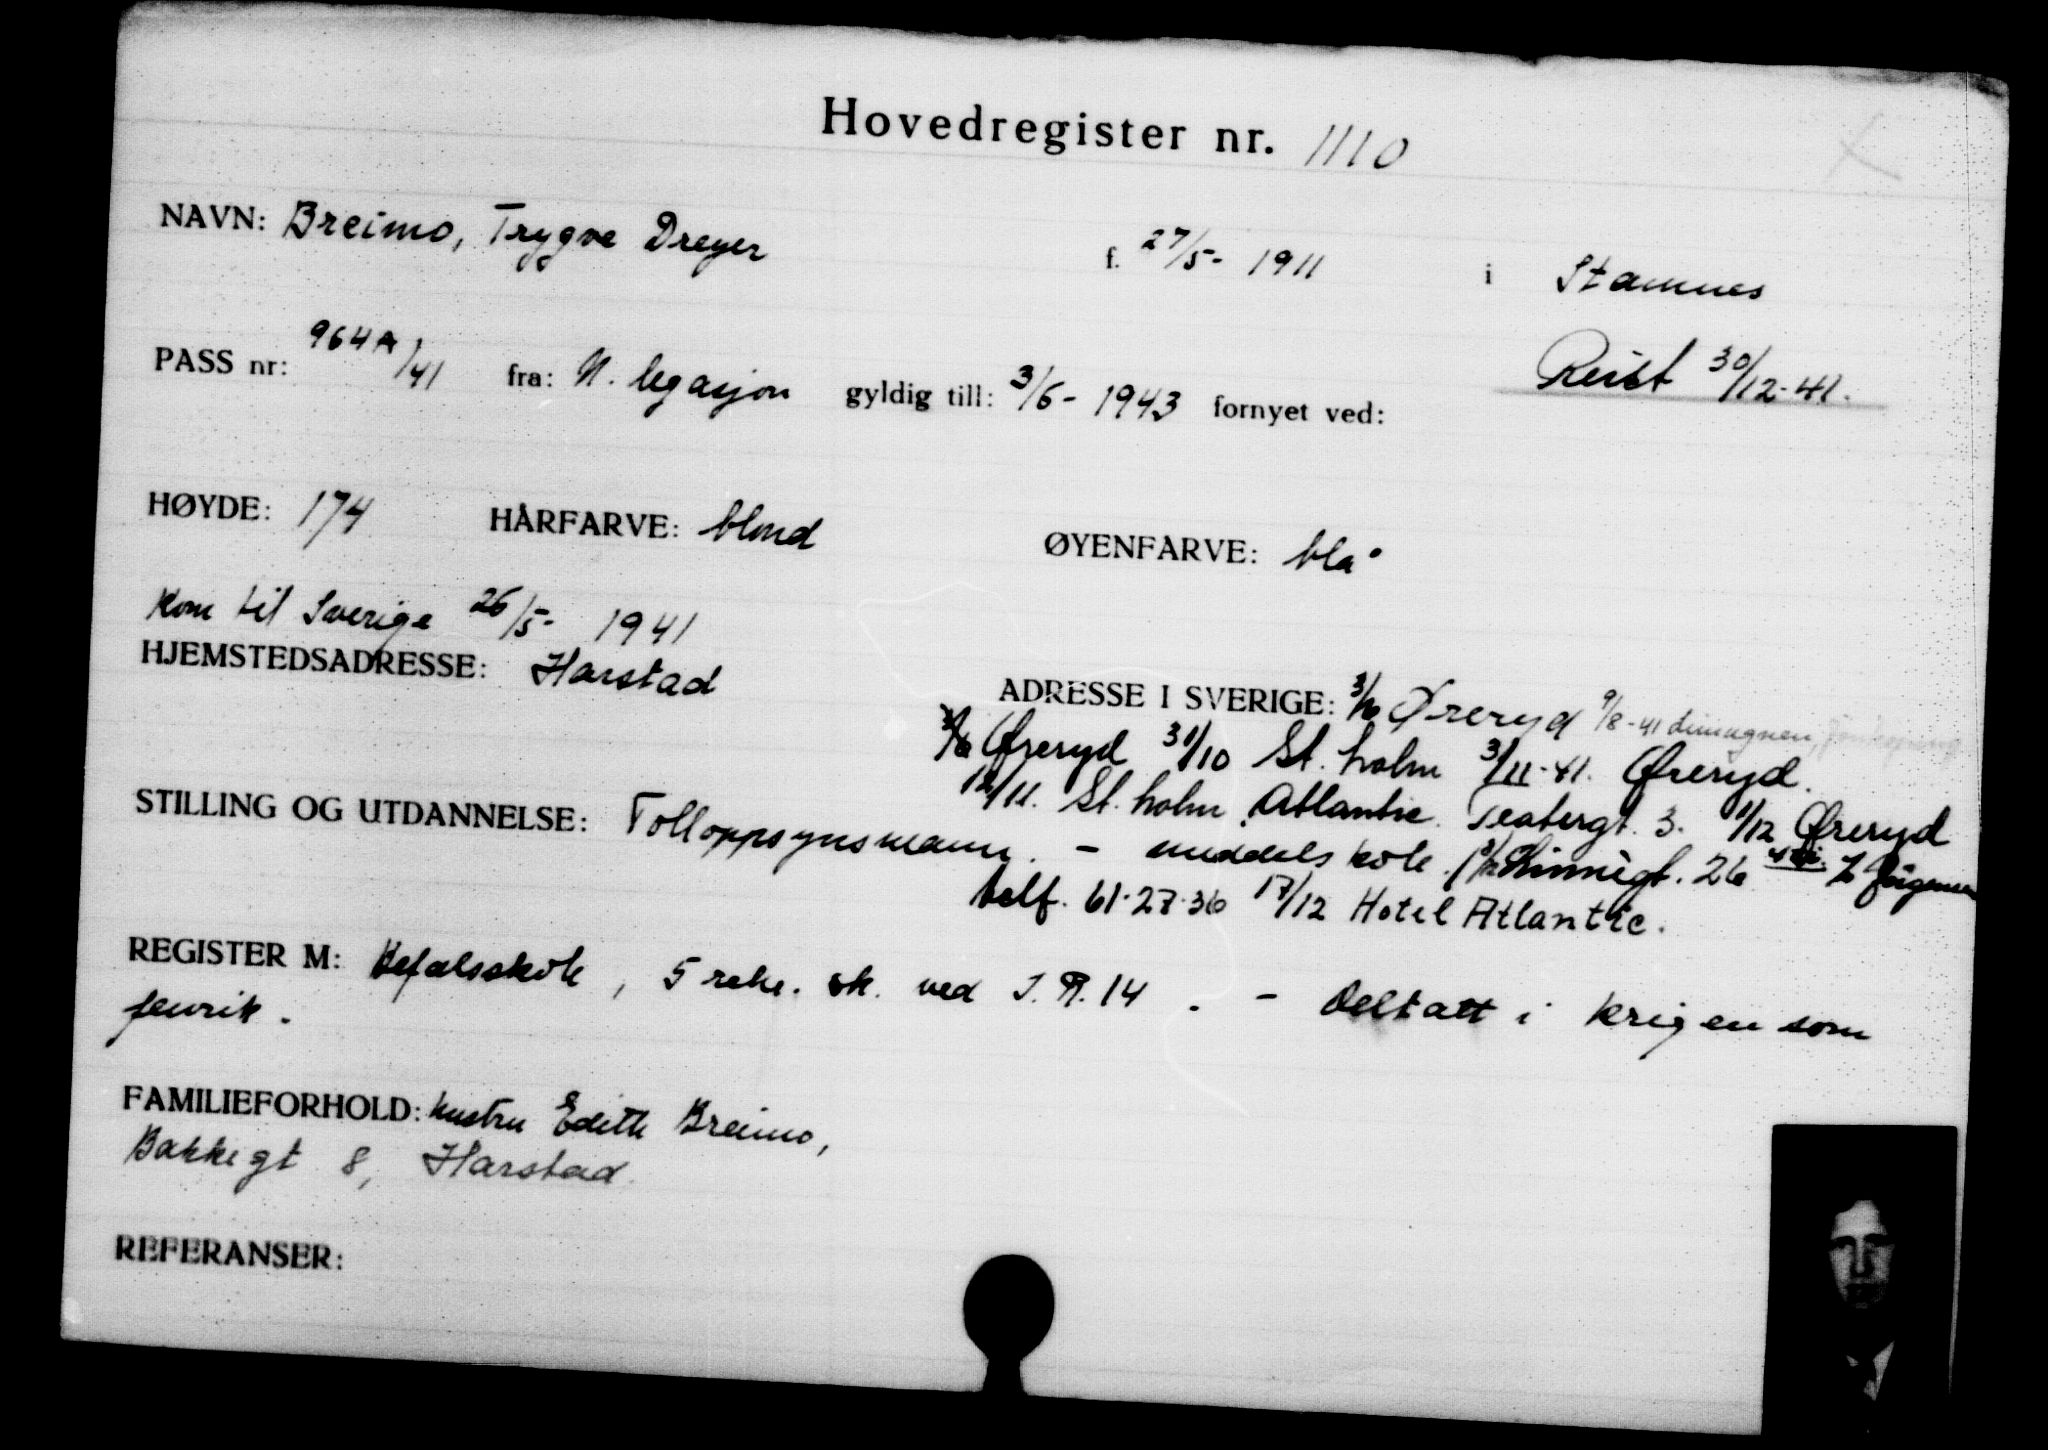 Hovedregister nr. 1110
NAVN: Breimo, Trygve Dreyer f. 27/5- 1911 i Stamnes
PASS nr: 964A/41 fra: N. legasjon gyldig till: 3/6- 1943 fornyet ved: Reist 30/12-41.
HØYDE: 174 HÅRFARVE: blond ØYENFARVE: blå
Kom til Sverige 26/5- 1941
HJEMSTEDSADRESSE: Harstad
ADRESSE I SVERIGE: 3/6 Øreryd 9/8-41
Øreryd 31/10 St. holm 3/11-41. Øreryd.
12/11. St. holm Atlantic. Teatergt. 3. 11/12 Øreryd
STILLING OG UTDANNELSE: Tolloppsynsmann. - middelskole.
26
telf. 61-27-36 17/12 Hotel Atlantic.
REGISTER M: Befalsskole, 5 rekr. sk. ved I.R. 14. - Deltatt i krigen som
fenrik.
FAMILIEFORHOLD: hustru Edith Breimo,
Bakkegt 8, Harstad.
REFERANSER: